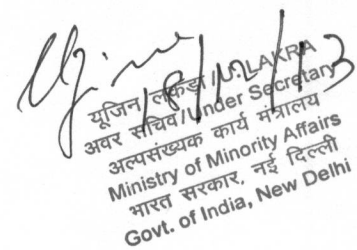 18/12/13
यूजिन लकड़ा / U. LAKRA
अवर सचिव / Under Secretary
अल्पसंख्यक कार्य मंत्रालय
Ministry of Minority Affairs
भारत सरकार, नई दिल्ली
Govt. of India, New Delhi